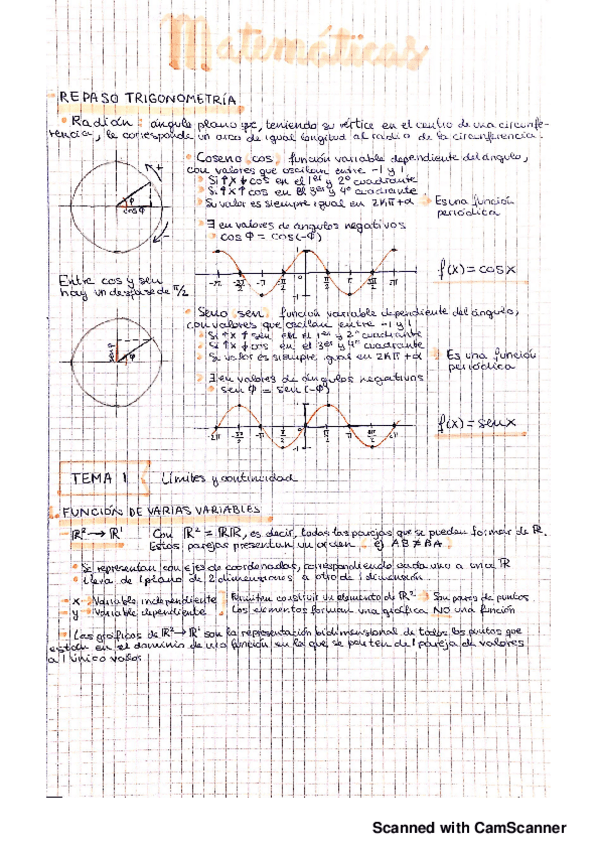 Matemáticas
REPASO TRIGONOMETRÍA
Radián: ángulo plano que, teniendo su vértice en el centro de una circunfe-
rencia, le corresponde un arco de igual longitud al radio de la circunferencia.
Coseno cos función variable dependiente del ángulo,
con valores que oscilan entre -1 y 1
Si ↑x ↓cos en el 1er y 2º cuadrante
Si ↑x ↑cos en el 3er y 4º cuadrante
Su valor es siempre igual en 2kπ+α
Es una función
periódica
∃ en valores de ángulos negativos
cos φ = cos(-φ)
f(x)=cosx
Entre cos y sen
hay un desfase de π/2
Seno sen función variable dependiente del ángulo,
con valores que oscilan entre -1 y 1
Si ↑x ↑sen en el 1er y 2º cuadrante
Si ↑x ↓cos en el 3er y 4º cuadrante
Su valor es siempre igual en 2kπ+α
Es una función
periódica
∃ en valores de ángulos negativos
sen φ = sen(-φ)
f(x)=senx
TEMA 1
Límites y continuidad
1. FUNCIÓN DE VARIAS VARIABLES
R² → R¹ Con R² = RxR, es decir, todas las parejas que se pueden formar de R.
Estas parejas presentan un orden ej AB ≠ BA
Se representan con ejes de coordenadas, correspondiendo cada uno a una R
Lleva de 1 plano de 2 dimensiones a otro de 1 dimensión
x → Variable independiente Permiten construir un elemento de R² → Son pares de puntos
y → Variable dependiente Los elementos forman una gráfica NO una función
Las gráficas de R² → R¹ son la representación bidimensional de todos los puntos que
están en el dominio de una función en la que se parten de 1 pareja de valores
a 1 único valor
Scanned with CamScanner